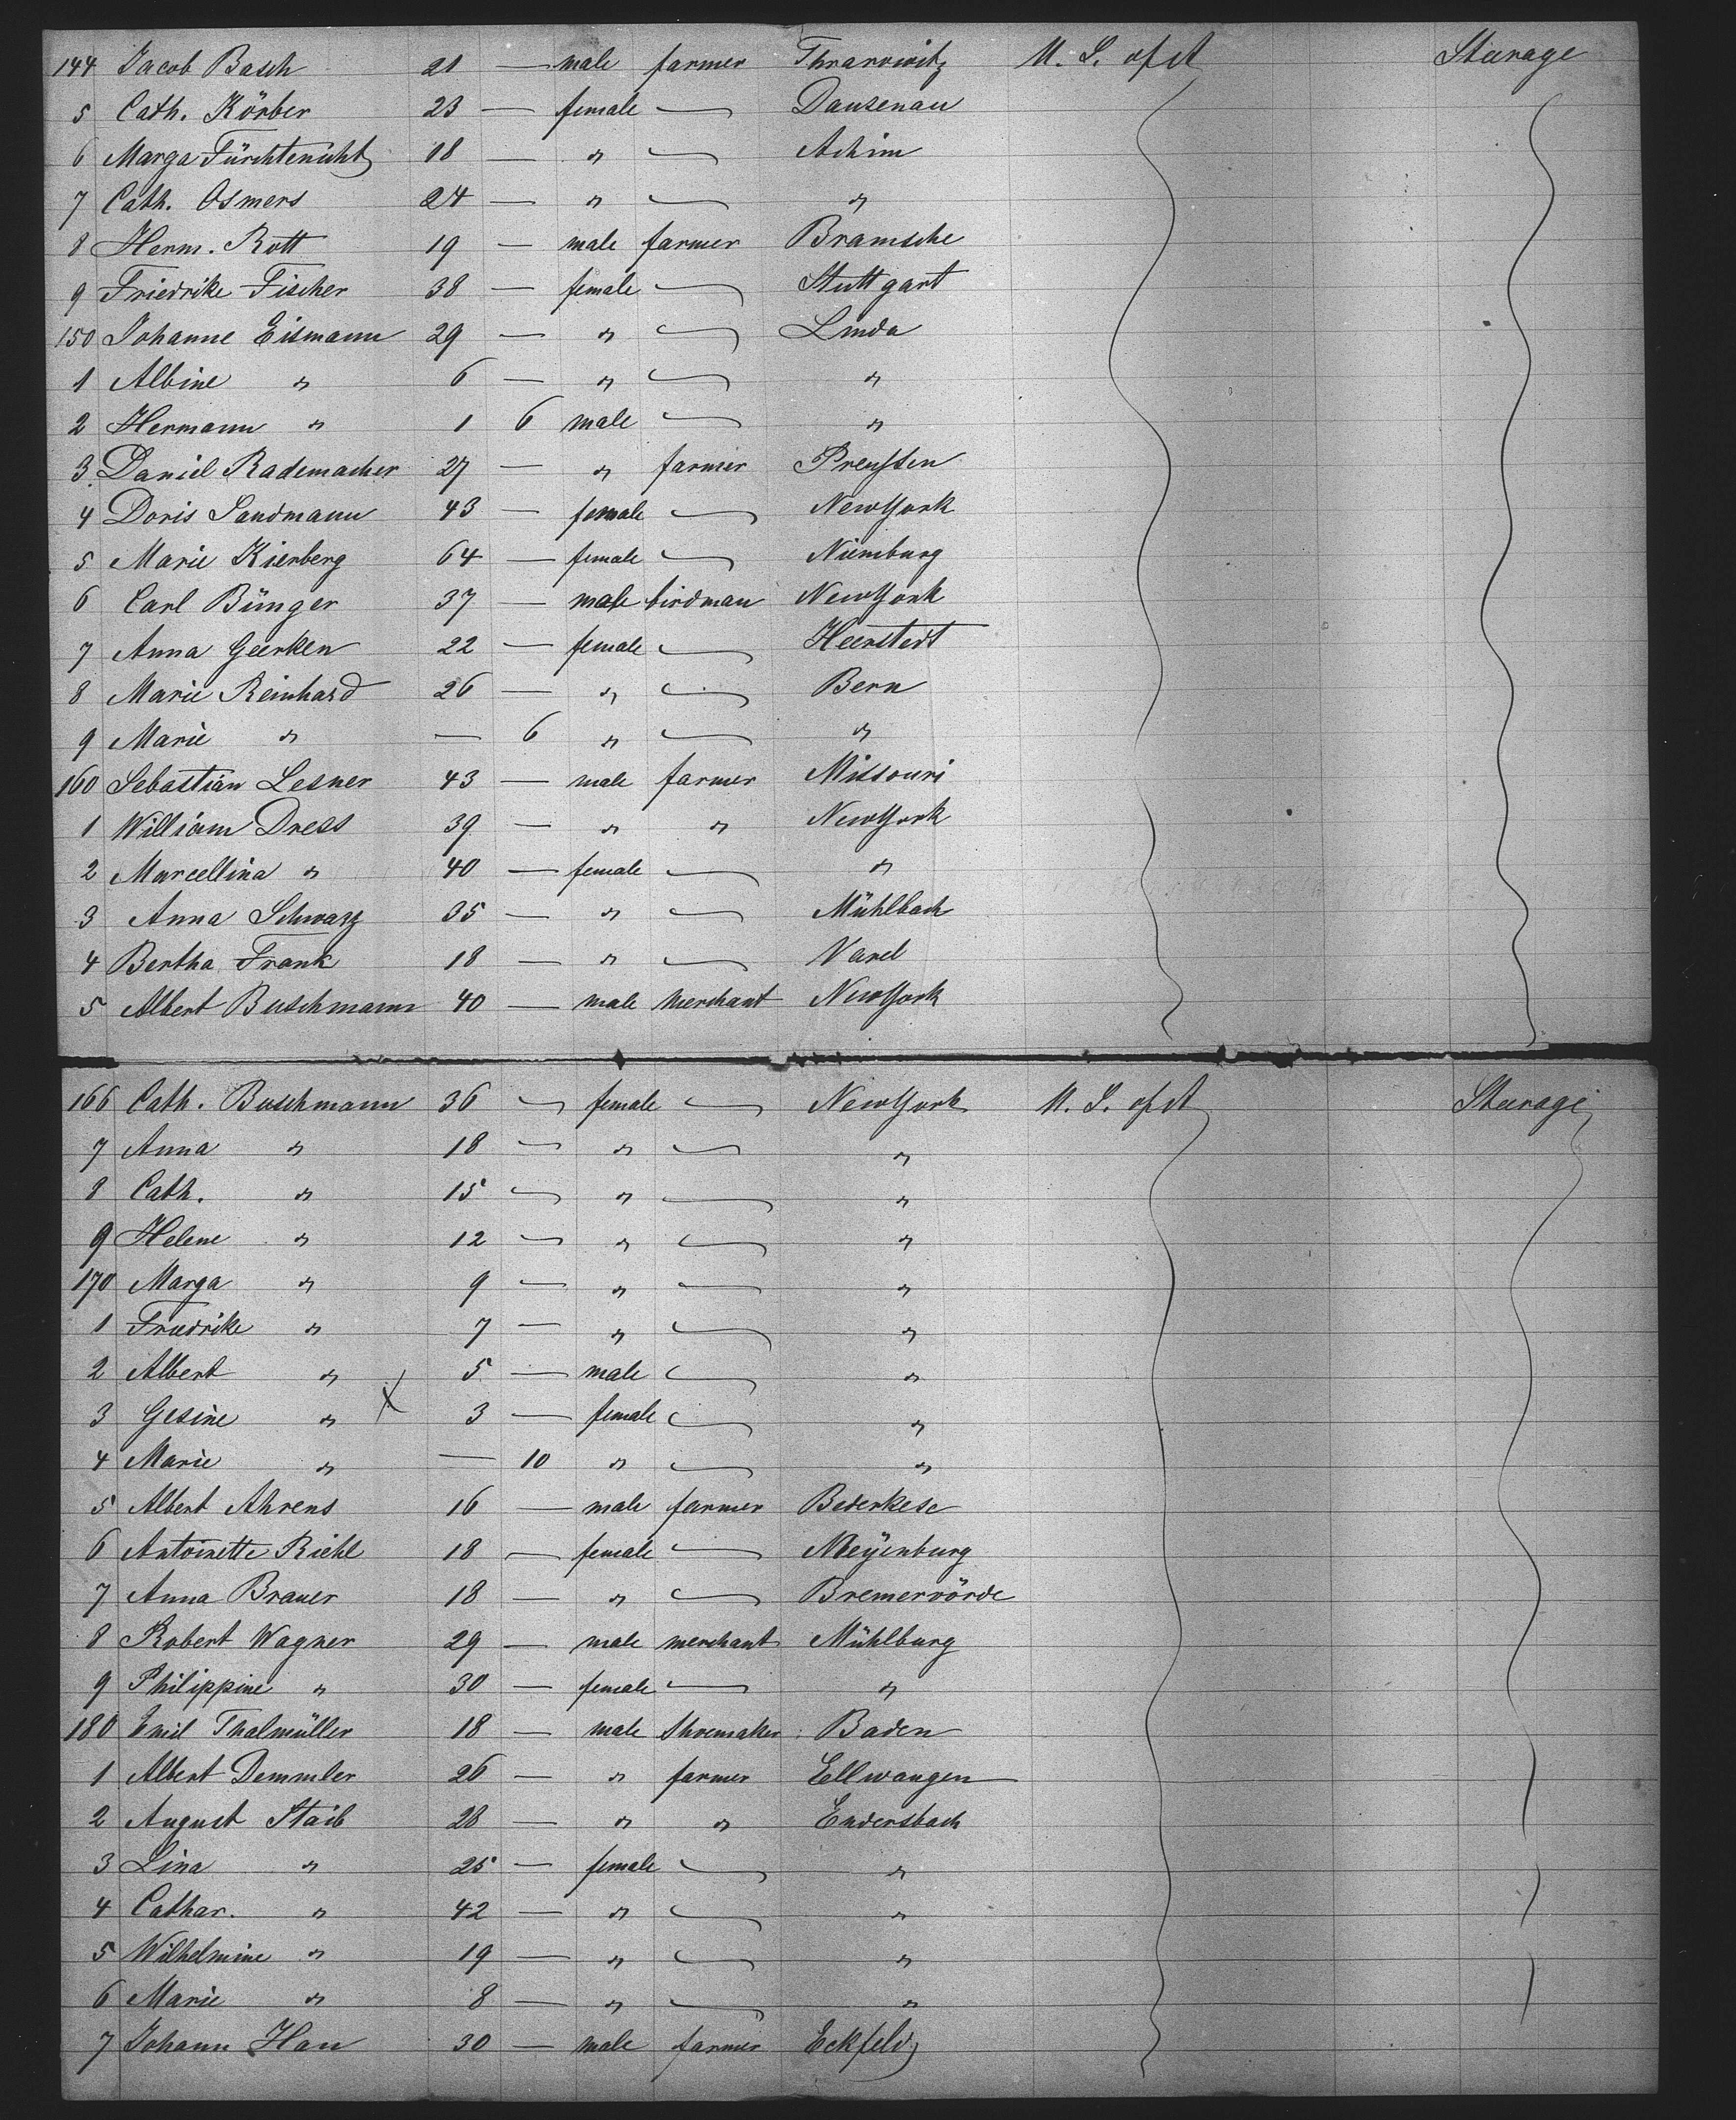 144 Jacob Basch 21 — male farmer Thrarowitz U. S. of A Steerage
5 Cath. Körber 23 — female — Dausenau
6 Marga Fürchtenicht 18 — " — Achim
7 Cath. Osmers 24 — " — "
8 Herm. Rott 19 — male farmer Bramsche
9 Friedrike Fischer 38 — female — Stuttgart
150 Johanne Eismann 29 — " — Linda
1 Albine " 6 — " — "
2 Hermann " 1 6 male — "
3 Daniel Rademacher 27 — " farmer Preussen
4 Doris Sandmann 43 — female — NewYork
5 Marie Kierberg 64 — female — Nienburg
6 Carl Bünger 37 — male birdman NewYork
7 Anna Geerken 22 — female — Heerstedt
8 Marie Reinhard 26 — " — Bern
9 Marie " — 6 " — "
160 Sebastian Lesner 43 — male farmer Missouri
1 William Dress 39 — " " NewYork
2 Marcellina " 40 — female — "
3 Anna Schwarz 35 — " — Mühlbach
4 Bertha Frank 18 — " — Varel
5 Albert Buschmann 40 — male merchant NewYork
166 Cath. Buschmann 36 — female — NewYork U. S. of A Steerage
7 Anna " 18 — " — "
8 Cath. " 15 — " — "
9 Helene " 12 — " — "
170 Marga " 9 — " — "
1 Friedrike " 7 — " — "
2 Albert " 5 — male — "
3 Gesine " X 3 — female — "
4 Marie " — 10 " — "
5 Albert Ahrens 16 — male farmer Bederkesa
6 Antoinette Riehl 18 — female — Meÿenburg
7 Anna Brauer 18 — " — Bremervörde
8 Robert Wagner 29 — male merchant Mühlburg
9 Philippine " 30 — female — "
180 Emil Thalmüller 18 — male Shoemaker Baden
1 Albert Demmler 26 — " farmer Ellwangen
2 August Staib 28 — " " Endersbach
3 Lina " 25 — female — "
4 Cathar. " 42 — " — "
5 Wilhelmine " 19 — " — "
6 Marie " 8 — " — "
7 Johann Hau 30 — male farmer Eckfeld